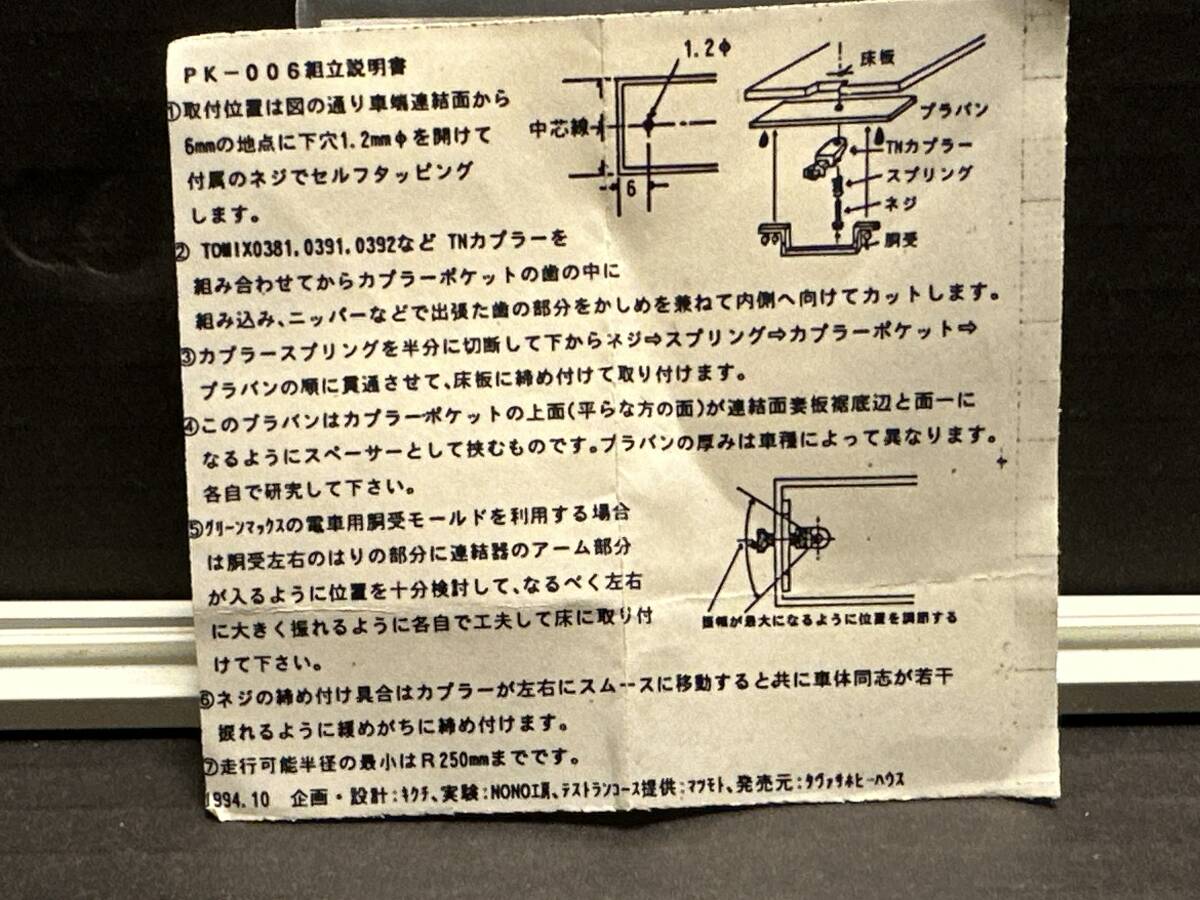 PK-006組立説明書
①取付位置は図の通り車端連結面から
6mmの地点に下穴1.2mmφを開けて
付属のネジでセルフタッピング
します。
1.2φ
中芯線
6
床板
プラバン
TNカプラー
スプリング
ネジ
胴受
② TOMIX0381.0391.0392など TNカプラーを
組み合わせてからカプラーポケットの歯の中に
組み込み、ニッパーなどで出張た歯の部分をかしめを兼ねて内側へ向けてカットします。
③カプラースプリングを半分に切断して下からネジ⇨スプリング⇨カプラーポケット⇨
プラバンの順に貫通させて、床板に締め付けて取り付けます。
④このプラバンはカプラーポケットの上面(平らな方の面)が連結面妻板裾底辺と面一に
なるようにスペーサーとして挟むものです。プラバンの厚みは車種によって異なります。
各自で研究して下さい。
⑤グリーンマックスの電車用胴受モールドを利用する場合
は胴受左右のはりの部分に連結器のアーム部分
が入るように位置を十分検討して、なるべく左右
に大きく振れるように各自で工夫して床に取り付
けて下さい。
振幅が最大になるように位置を調節する
⑥ネジの締め付け具合はカプラーが左右にスムースに移動すると共に車体同志が若干
捩れるように緩めがちに締め付けます。
⑦走行可能半径の最小はR250mmまでです。
1994.10 企画・設計:キクチ、実験:NONO工房、テストランコース提供:マツモト、発売元:タヴァサホビーハウス